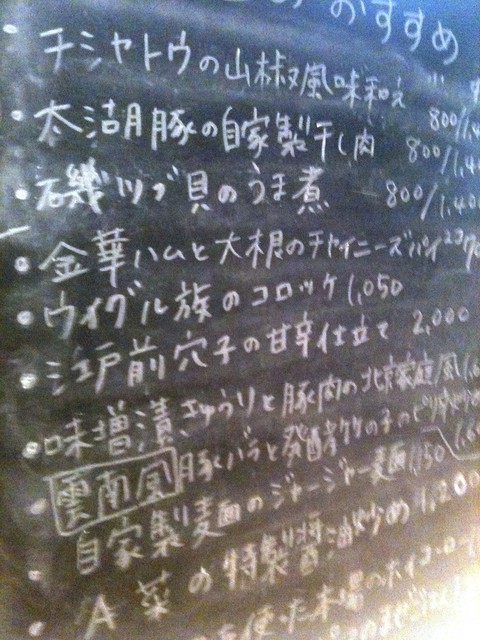 のおすすめ
・チシャトウの山椒風味和え 〃
・太湖豚の自家製干し肉 800/1,4
・磯ツブ貝のうま煮 800/1,40
・金華ハムと大根のチャイニーズパイ 2コ
・ウイグル族のコロッケ 1,050
・江戸前穴子の甘辛仕立て 2,000
・味噌漬きゅうりと豚肉の北京家庭風
・雲南風 豚バラと発酵竹の子のピリ辛炒め
自家製麺のジャージャー麺 1,150
・A菜の特製醤油炒め 1,200
使った本場のホイコーロー